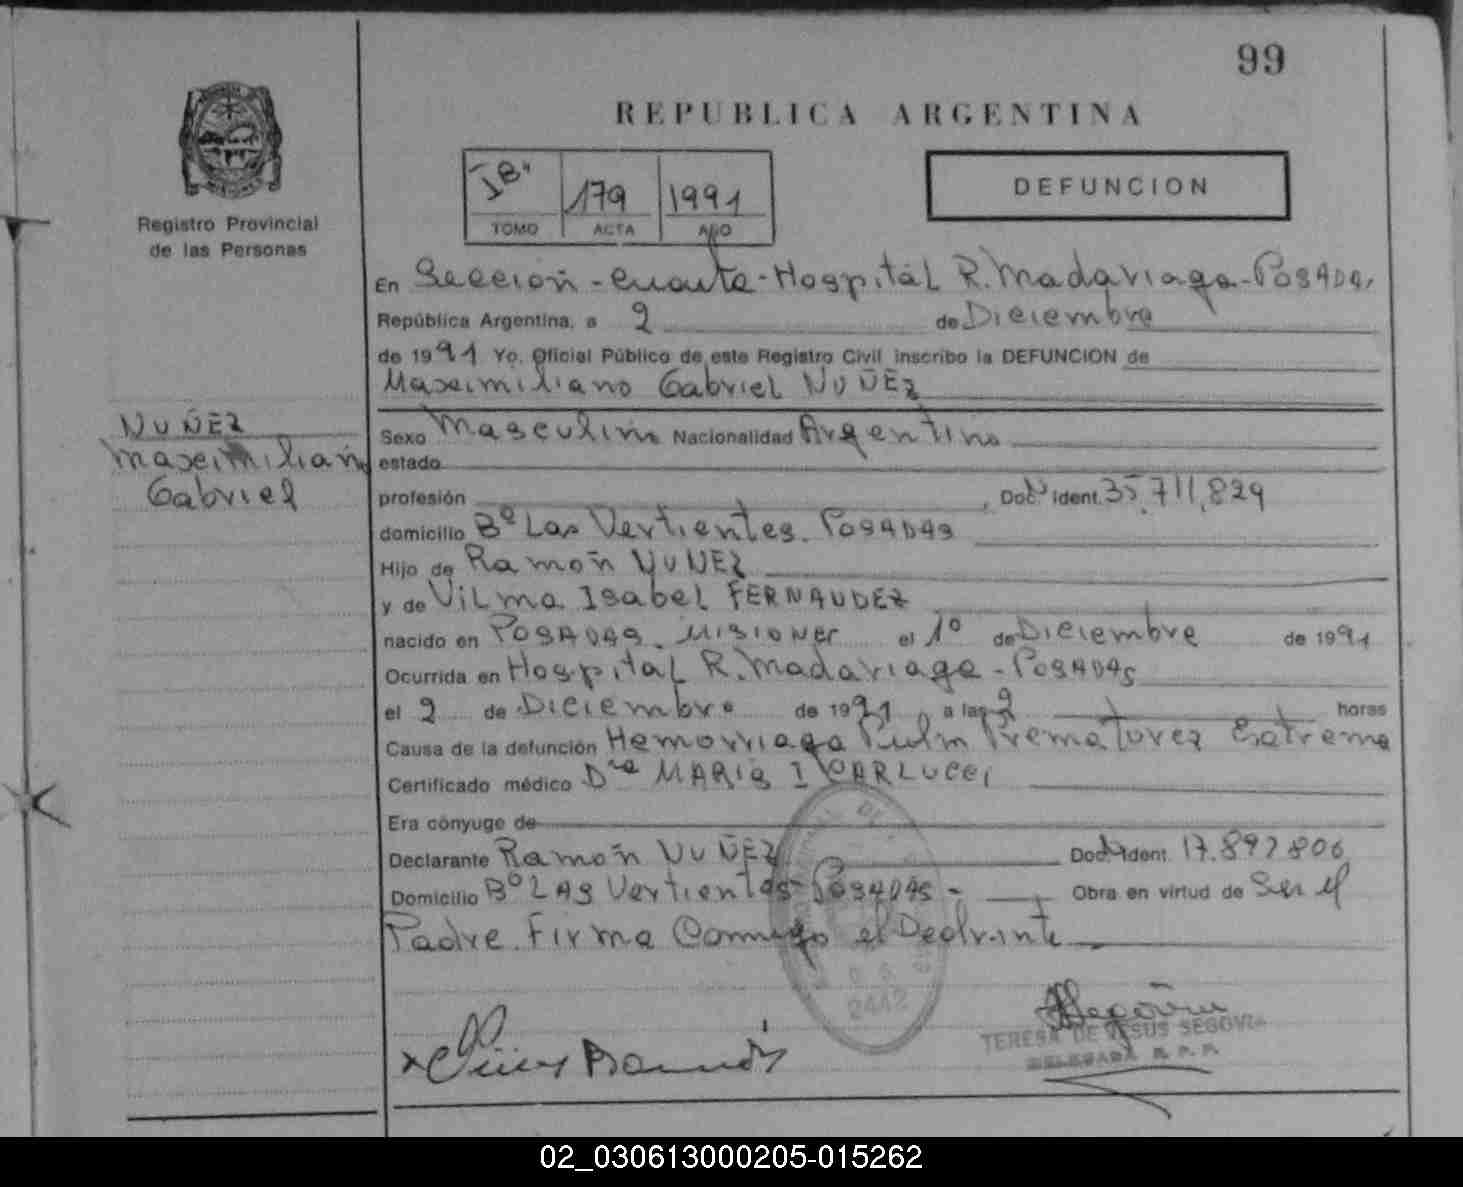 99
REPUBLICA ARGENTINA
IBn 179 1991
TOMO ACTA AÑO
DEFUNCION
Registro Provincial
de las Personas
En Seccion - Cuarta - Hospital R. Madariaga - Posadas
República Argentina, a 2 de Diciembre
de 1991 Yo, Oficial Público de este Registro Civil inscribo la DEFUNCION de
Maximiliano Gabriel NUÑEZ
NUÑEZ
Maximiliano
Gabriel
Sexo Masculino Nacionalidad Argentino
estado
profesión , Doc. Ident. 35.711.829
domicilio Bº Las Vertientes. Posadas
Hijo de Ramón NUÑEZ
y de Vilma Isabel FERNANDEZ
nacido en Posadas. Misiones el 1º de Diciembre de 1991
Ocurrida en Hospital R. Madariaga - Posadas
el 2 de Diciembre de 1991 a las 2 horas
Causa de la defunción Hemorriaga Pulm Prematurez Extrema
Certificado médico Dra MARIA I CARLUCCI
Era cónyuge de
Declarante Ramón NUÑEZ Doc. Ident. 17.897806
Domicilio Bº LAS Vertientes - Posadas - Obra en virtud de Ser el
Padre. Firma Conmigo el Declrante
2442
TERESA DE JESUS SEGOVIA
DELEGADA R. P. P.
02_030613000205-015262